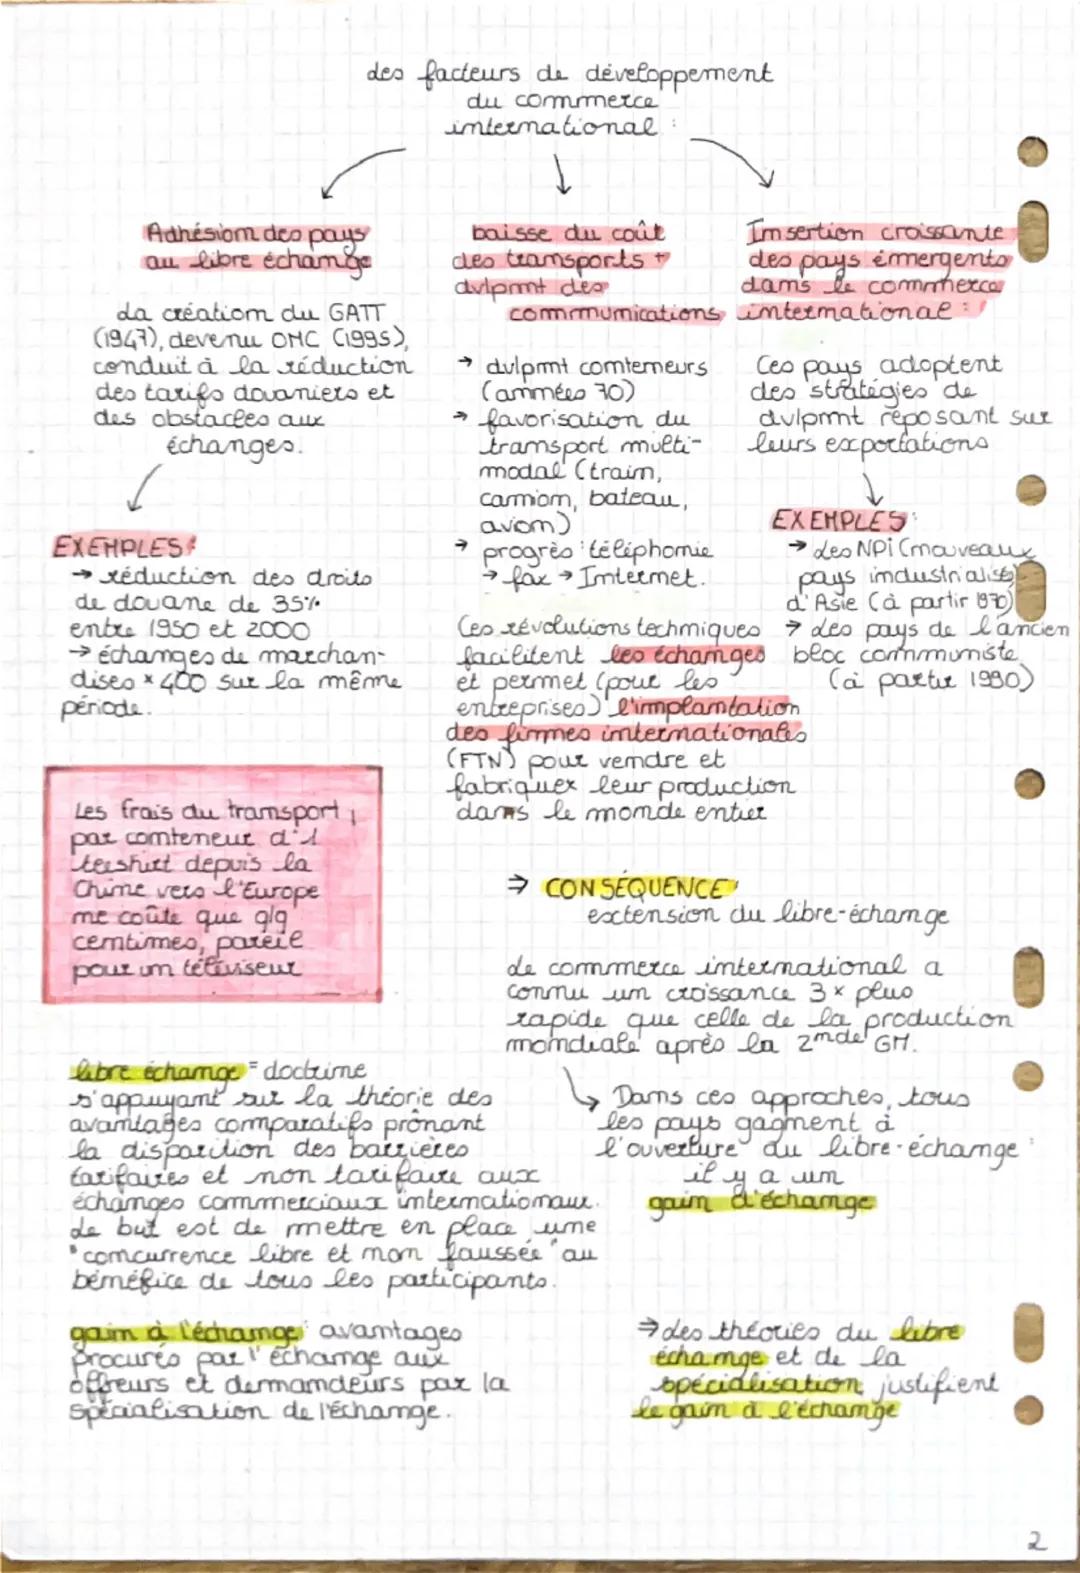 des facteurs de développement
du commerce
international :
Adhésion des pays
au libre échange
La création du GATT
(1947), devenu OMC (1995),
conduit à la réduction
des tarifs douaniers et
des obstacles aux
échanges.
EXEMPLES:
→ réduction des droits
de douane de 35%
entre 1950 et 2000
→ échanges de marchan-
dises × 400 sur la même
période.
Les frais du transport,
par conteneur d'1
teeshirt depuis la
Chine vers l'Europe
ne coûte que qlq
centimes, pareil
pour un téléviseur
baisse du coût
des transports +
dvlpmt des
communications
→ dvlpmt conteneurs
(années 70)
→ favorisation du
transport multi-
modal (train,
camion, bateau,
avion)
→ progrès : téléphonie
→ fax → Internet.
Ces révolutions techniques
facilitent les échanges
et permet (pour les
entreprises) l'implantation
des firmes internationales
(FTN) pour vendre et
fabriquer leur production
dans le monde entier
Insertion croissante
des pays émergents
dans le commerce
international :
Ces pays adoptent
des stratégies de
dvlpmt reposant sur
leurs exportations
EXEMPLES:
→ les NPI (nouveaux
pays industrialisés)
d'Asie (à partir 1970)
→ les pays de l'ancien
bloc communiste
(à partir 1990)
⇒ CONSÉQUENCE:
extension du libre-échange
Le commerce international a
connu un croissance 3 × plus
rapide que celle de la production
mondiale après la 2nde GM.
Dans ces approches, tous
les pays gagnent à
l'ouverture du libre-échange :
il y a un
gain d'échange
⇒ les théories du libre
échange et de la
spécialisation justifient
le gain à l'échange
libre échange = doctrine
s'appuyant sur la théorie des
avantages comparatifs prônant
la disparition des barrières
tarifaires et non tarifaire aux
échanges commerciaux internationaux.
Le but est de mettre en place une
"concurrence libre et non faussée" au
bénéfice de tous les participants.
gain à l'échange : avantages
procurés par l'échange aux
offreurs et demandeurs par la
spécialisation de l'échange.
2